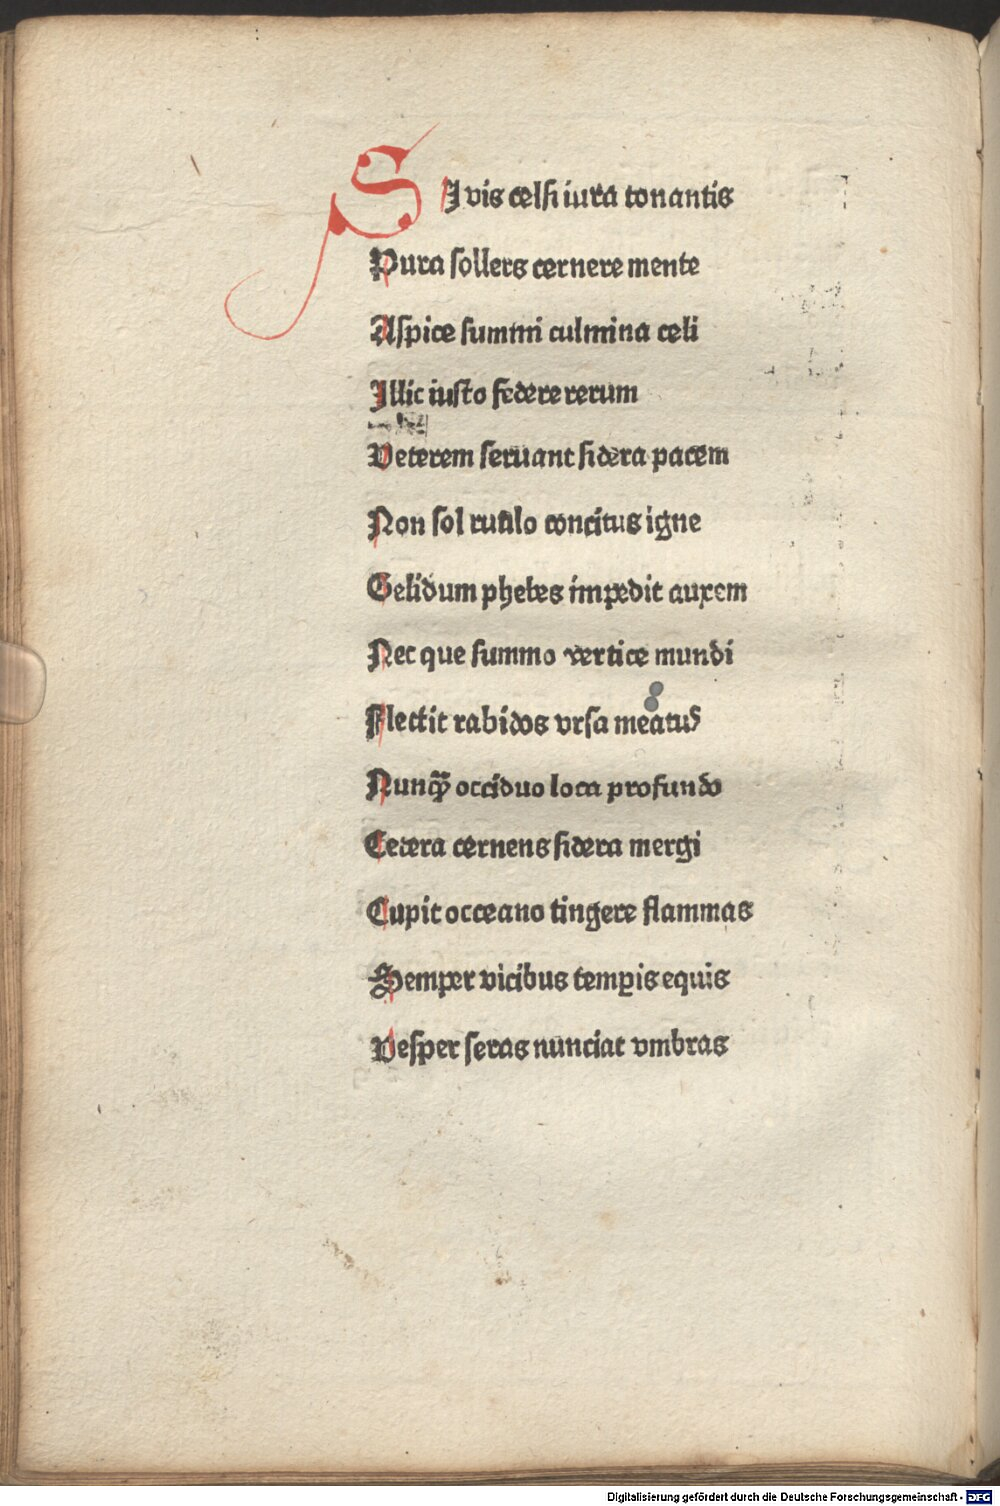 SI vis celsi iura tonantis
Pura sollers cernere mente
Aspice summi culmina celi
Illic iusto federe rerum
Veterem seruant sidera pacem
Non sol rutilo concitus igne
Gelidum phebes impedit auxem
Nec que summo vertice mundi
Flectit rabidos vrsa meatus
Nunq̃ occiduo loca profundo
Cetera cernens sidera mergi
Cupit occeano tingere flammas
Semper vicibus temꝑis equis
Vesper seras nunciat vmbras
Digitalisierung gefördert durch die Deutsche Forschungsgemeinschaft - DFG